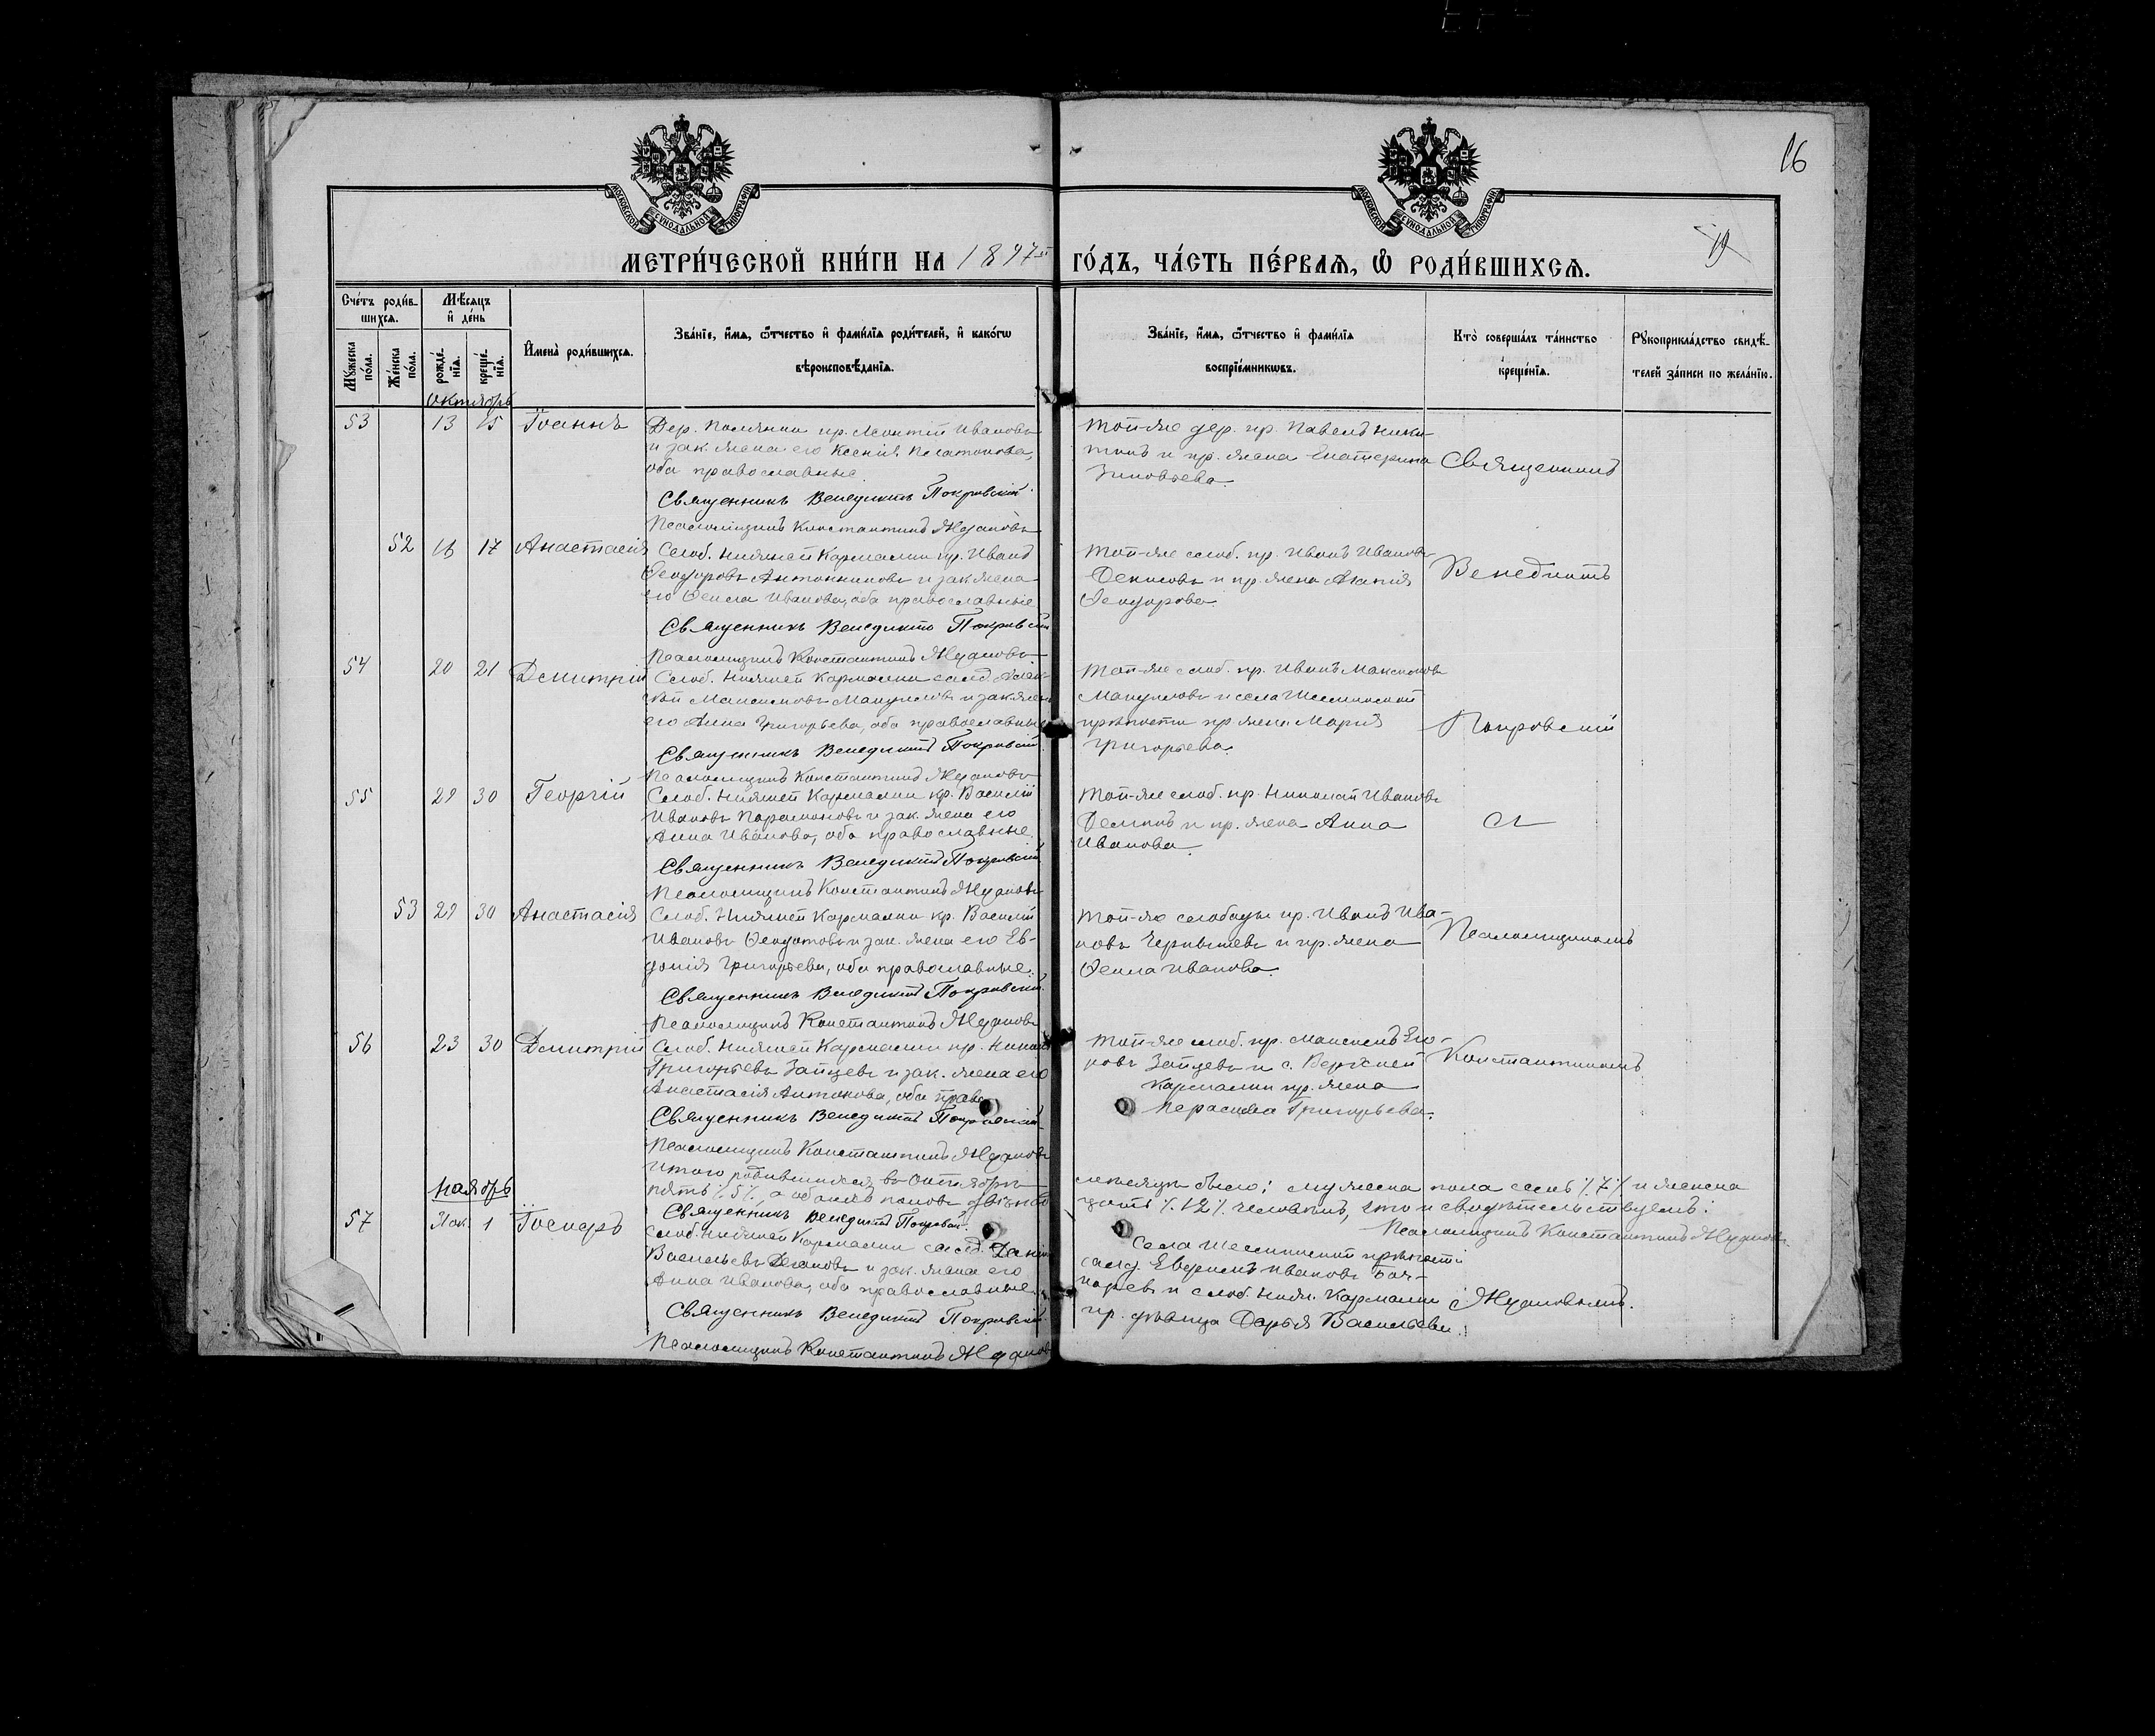 16
19
МОСКОВСКОЙ СѴНОДАЛЬНОЙ ТИПОГРАФІИ
МОСКОВСКОЙ СѴНОДАЛЬНОЙ ТИПОГРАФІИ
МЕТРИ́ЧЕСКОЙ КНИ́ГИ НА 1897 ГО́ДЪ, ЧА́СТЬ ПЕ́РВАЯ, Ѡ РОДИ́ВШИХСЯ.
Сче́тъ роди́в-
шихся.
Мѣ́сяцъ
и҆ де́нь
Му́жеска по́ла.
Же́нска по́ла.
рожде́-
нїя.
креще́-
нїя.
И҆мена̀ роди́вшихся.
Зва́нїе, и҆́мя, ѻ҆́тчество и҆ фами́лїя роди́телей, и҆ како́гѡ
вѣроисповѣ́данїя.
Зва́нїе, и҆́мя, ѻ҆́тчество и҆ фами́лїя
воспрїе́мникѡвъ.
Кто̀ соверша́лъ та́инство
креще́нїя.
Рꙋкоприкла́дство свидѣ́-
телей за́писи по жела́нїю.
октябрь
53 13 15 Іоаннъ
Дер. Полянки кр. Леонтій Ивановъ
и зак. жена его Ксенія Платонова,
оба православные.
Священникъ Венедиктъ Покровскій
Псаломщикъ Константинъ Ждановъ
Той-же дер. кр. Павелъ Ники-
тинъ и кр. жена Екатерина
Зиновьева.
Священникъ
52 16 17 Анастасія
Слоб. Нижней Кармалки кр. Иванъ
Ѳеодоровъ Антонниковъ и зак. жена
его Ѳекла Иванова, оба православные
Священникъ Венедиктъ Покровскій
Псаломщикъ Константинъ Ждановъ
Той-же слоб. кр. Иванъ Ивановъ
Денисовъ и кр. жена
Ѳеодорова.
Венедиктъ
54 20 21 Димитрій
Слоб. Нижней Кармалки солд. Алек-
сѣй Максимовъ Мануиловъ и зак. жена
его Анна Григорьева, оба православные
Священникъ Венедиктъ Покровскій.
Псаломщикъ Константинъ Ждановъ
Той-же слоб. кр. Иванъ Максимовъ
Мануиловъ и села Шешминской
крѣпости кр. жена Марія
Григорьева.
Покровскій
55 29 30 Георгій
Слоб. Нижней Кармалки кр. Василій
Ивановъ Парамоновъ и зак. жена его
Анна Иванова, оба православные.
Священникъ Венедиктъ Покровскій
Псаломщикъ Константинъ Ждановъ
Той-же слоб. кр. Николай Ивановъ
Деминъ и кр. жена Анна
Иванова.
съ
53 29 30 Анастасія
Слоб. Нижней Кармалки кр. Василій
Ивановъ Ѳедотовъ и зак. жена его Ев-
докія Григорьева, оба православные.
Священникъ Венедиктъ Покровскій.
Псаломщикъ Константинъ Ждановъ
Той-же слободы кр. Иванъ Ива-
новъ Чернышевъ и кр. жена
Ѳекла Иванова.
Псаломщикомъ
56 23 30 Димитрій
Слоб. Нижней Кармалки кр.
Григорьевъ Зайцевъ и зак. жена его
Анастасія Антонова, оба прав.
Священникъ Венедиктъ Покровскій
Псаломщикъ Константинъ Ждановъ
Той-же слоб. кр. Максимъ Его-
ровъ Зайцевъ и с. Верхней
Кармалки кр. жена
Параскева Григорьева.
Константиномъ
Итого родившихся въ Октябрѣ мѣсяцѣ было: мужеска пола семь %7% и женска
пять %5%, а обоихъ половъ двѣнад-цать %12% человѣкъ, что и свидѣтельствуемъ:
Священникъ Венедиктъ Покровскій.
Псаломщикъ Константинъ Ждановъ
ноябрь
57 1 Іосифъ
Слоб. Нижней Кармалки солд.
Васильевъ и зак. жена его
Анна Иванова, оба православные.
Священникъ Венедиктъ Покровскій.
Псаломщикъ Константинъ Ждановъ
Села Шешминской крѣпости
солд. Ивановъ
и слоб. Нижн. Кармалки
кр. дѣвица Дарья Васильева.
Ждановымъ.